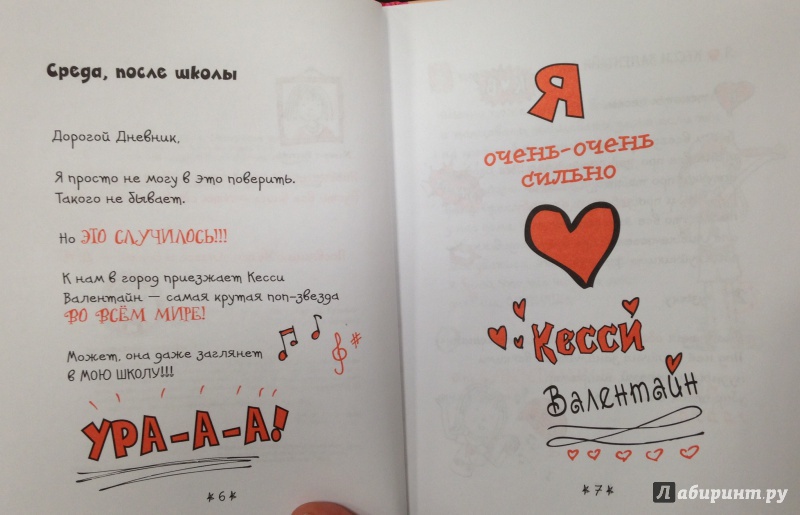 Среда, после школы
Дорогой Дневник,
Я просто не могу в это поверить.
Такого не бывает.
Но ЭТО СЛУЧИЛОСЬ!!!
К нам в город приезжает Кесси
Валентайн — самая крутая поп-звезда
ВО ВСЁМ МИРЕ!
Может, она даже заглянет
в МОЮ ШКОЛУ!!!
УРА-А-А!
*6*
Я
очень-очень
сильно
Кесси
Валентайн
*7*
Лабиринт.ру